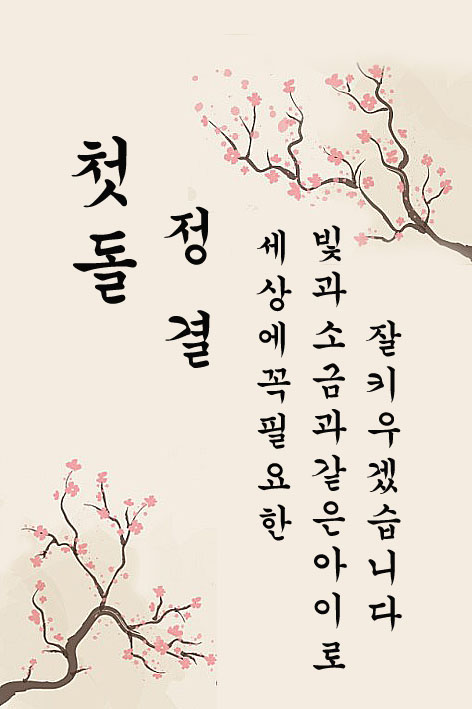 첫돌
정결
세상에꼭필요한
빛과소금과같은아이로
잘키우겠습니다